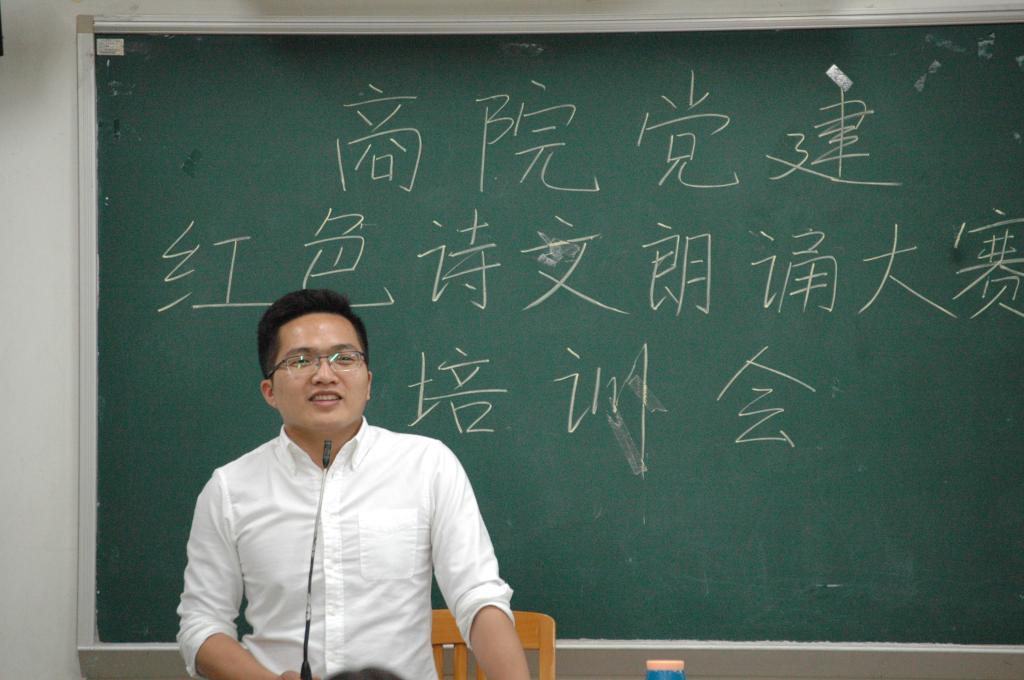 商院党建
红色诗文朗诵大赛
培训会